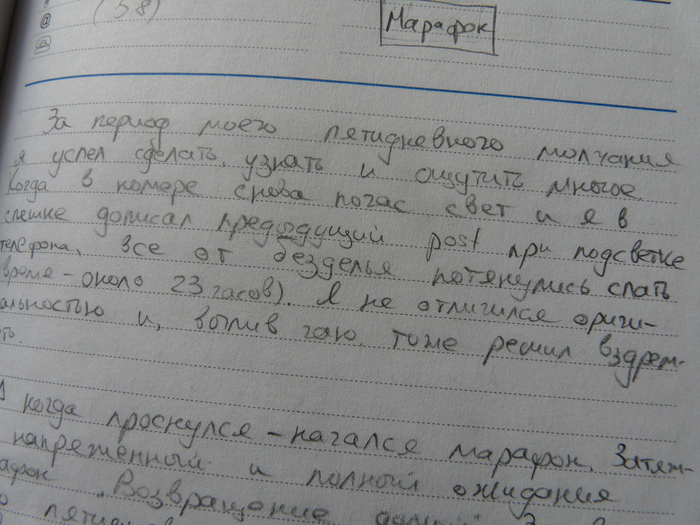 (58)
@
Марафон
За период моего пятидневного молчания
я успел сделать, узнать и ощутить многое
Когда в номере снова погас свет и я в
спешке дописал предыдущий post при подсветке
телефона, все от безделья потянулись спать
время - около 23 часов). Я не отличился ориги-
альностью и, выпив чаю, тоже решил вздрем-
ть.
когда проснулся - начался марафон. Затяж-
напряженный и полный ожидания
афон "Возвращение